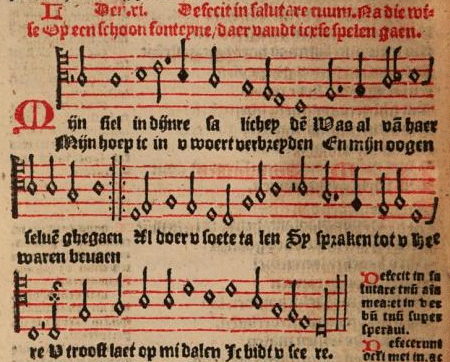 Ver. xi. Defecit in salutare tuum. Na die wi-
se Op een schoon fonteyne, daer vandt icxse spelen gaen.
MIjn siel in dijnre sa lichey dẽ Was al vã haer
Mijn hoep ic in v woert verbreyden En mijn oogen
seluẽ ghegaen Al doer v soete ta len Sy spraken tot v hee
waren beuaen
re V troost laet op mi dalen Ic bidt v see re.
Defecit in sa
lutare tuũ aĩa
mea: et in ver
bũ tuũ super
speraui.
Defecerunt